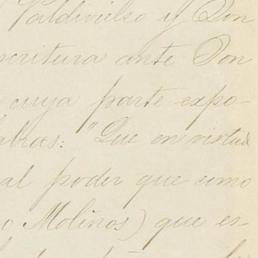 Valdivielso y Don
critura ante Don
cuya parte expo-
abras: "Que en virtud
al poder que como
o Molinos) que es-